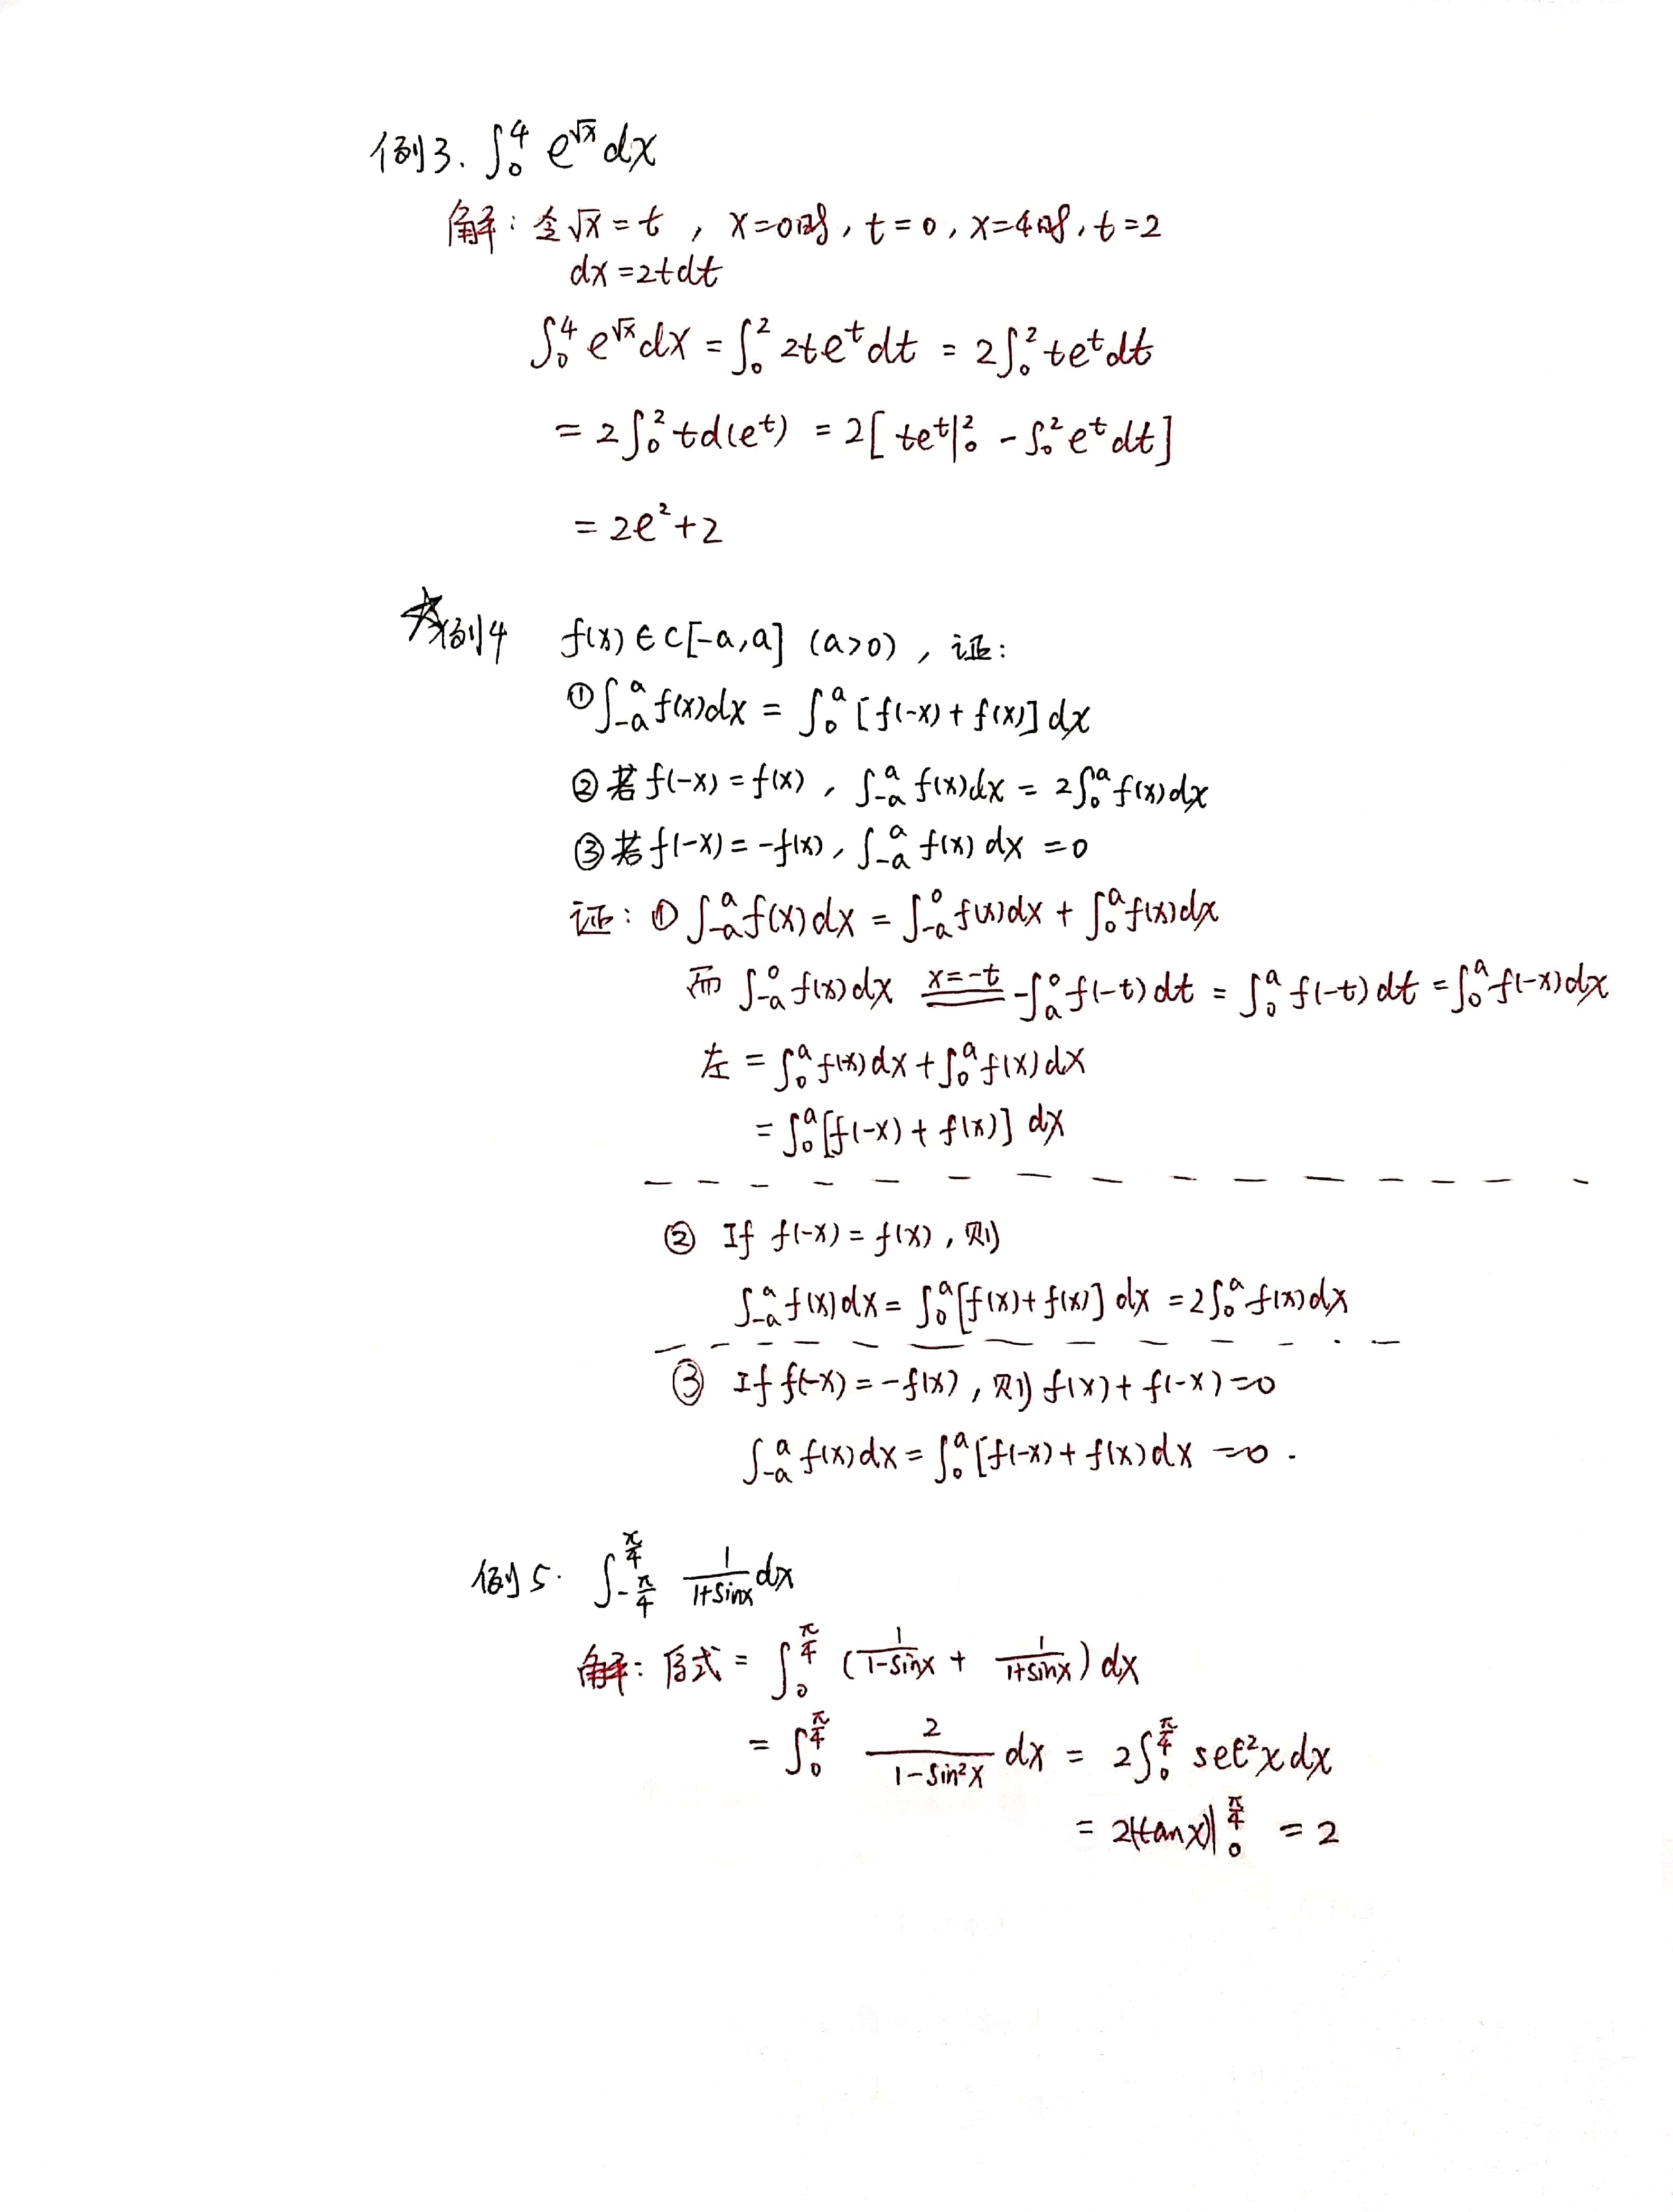 例3. ∫₀⁴ e^{√x} dx
解：令√x = t ，x=0时，t=0，x=4时，t=2
dx=2tdt
∫₀⁴ e^{√x} dx = ∫₀² 2te^t dt = 2∫₀² te^t dt
= 2∫₀² td(e^t) = 2[te^t|₀² - ∫₀² e^t dt]
= 2e²+2
☆例4 f(x)∈C[-a,a] (a>0)，证：
①∫_{-a}^{a} f(x)dx = ∫₀^a [f(-x)+f(x)] dx
②若f(-x)=f(x)，∫_{-a}^{a} f(x)dx = 2∫₀^a f(x)dx
③若f(-x)=-f(x)，∫_{-a}^{a} f(x) dx =0
证：①∫_{-a}^{a} f(x)dx = ∫_{-a}^{0} f(x)dx + ∫₀^a f(x)dx
而 ∫_{-a}^{0} f(x)dx x=-t -∫_a^0 f(-t)dt = ∫₀^a f(-t)dt = ∫₀^a f(-x)dx
左 = ∫₀^a f(-x)dx + ∫₀^a f(x)dx
= ∫₀^a [f(-x)+f(x)] dx
② If f(-x)=f(x)，则
∫_{-a}^{a} f(x)dx = ∫₀^a [f(x)+f(x)] dx = 2∫₀^a f(x)dx
③ If f(-x)=-f(x)，则 f(x)+f(-x)=0
∫_{-a}^{a} f(x)dx = ∫₀^a [f(-x)+f(x)dx =0.
例5. ∫_{-π/4}^{π/4} 1/(1+sinx) dx
解：原式 = ∫₀^{π/4} (1/(1-sinx) + 1/(1+sinx)) dx
= ∫₀^{π/4} 2/(1-sin²x) dx = 2∫₀^{π/4} sec²x dx
= 2(tanx)|₀^{π/4} = 2